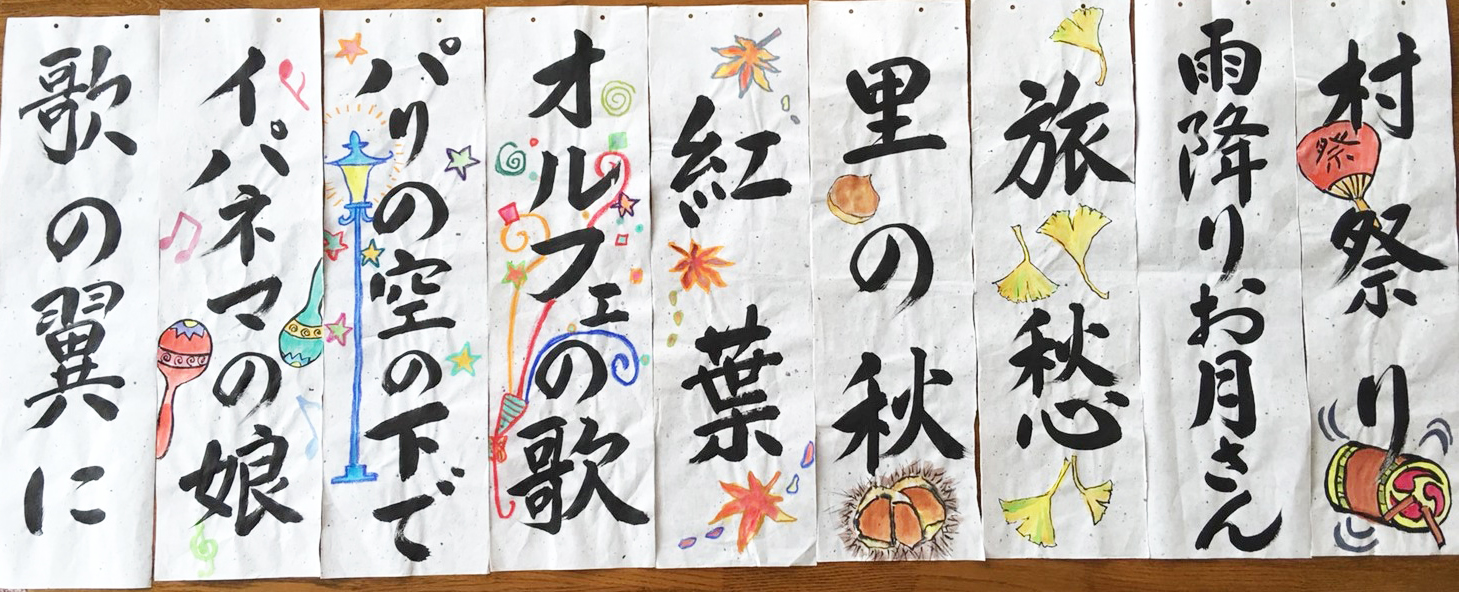 村祭り
祭
雨降りお月さん
旅愁
里の秋
紅葉
オルフェの歌
パリの空の下で
イパネマの娘
歌の翼に